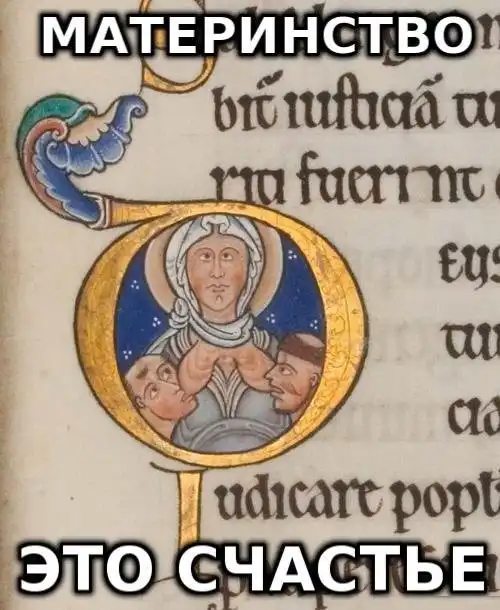 МАТЕРИНСТВО
bit̃ iusticiã tu
riti fuerint
Eus
tu
cia
udicare popł
ЭТО СЧАСТЬЕ